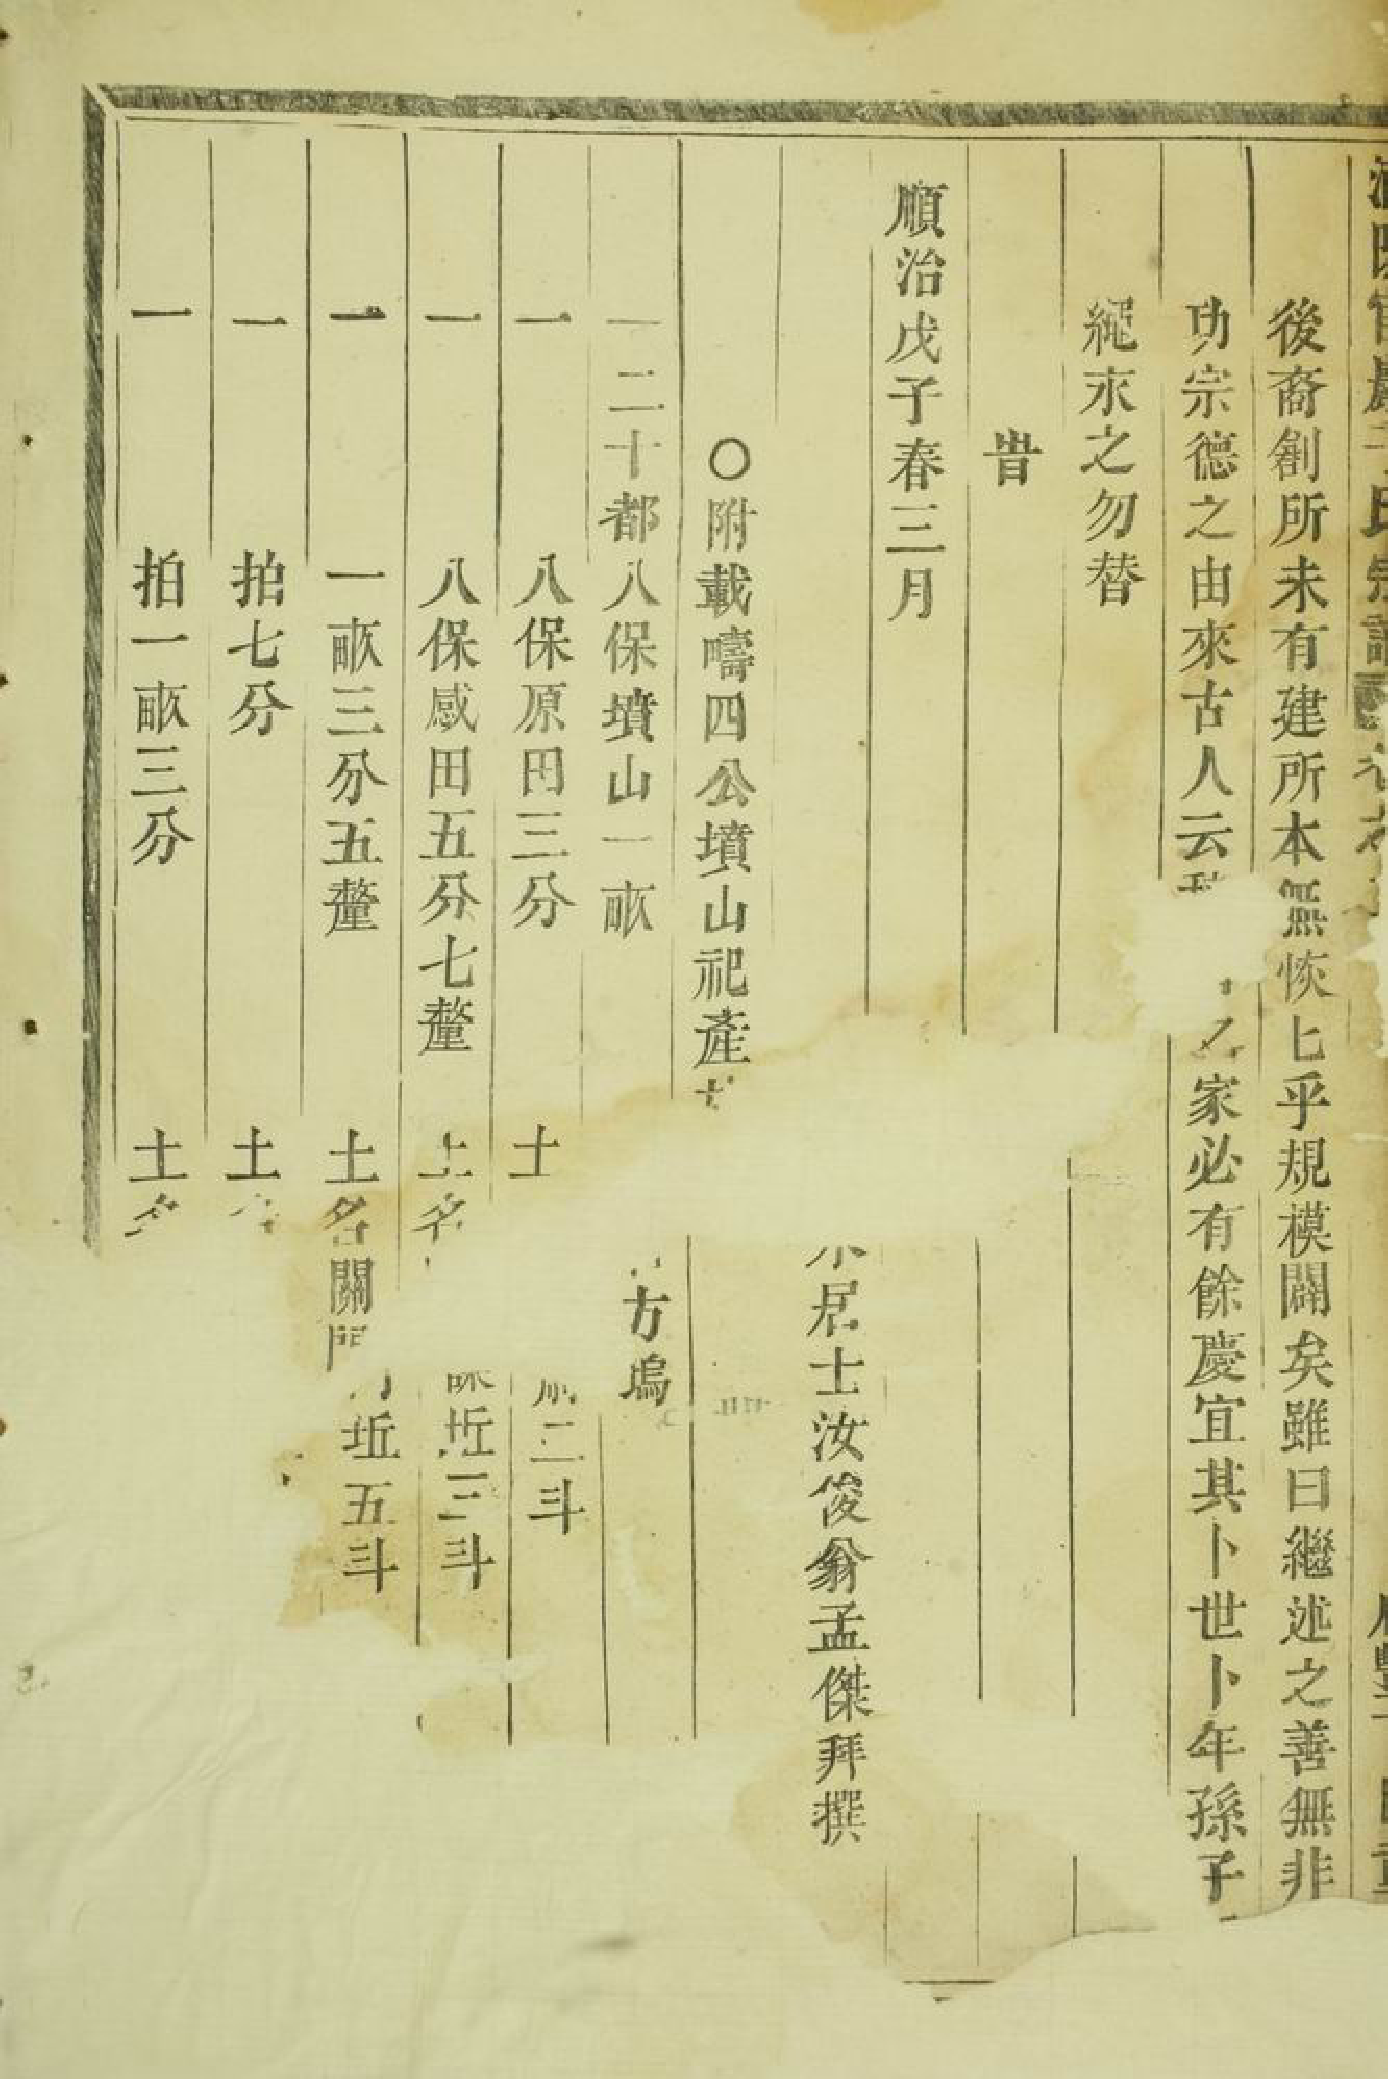 氏宗譜
後裔創所未有建所本無恢乜乎規模闢矣雖曰繼述之善無非
功宗德之由來古人云 家必有餘慶宜其卜世卜年孫子
繩朩之勿替
旹
順治戊子春三月
居士汝俊翁孟傑拜撰
〇附載疇四公墳山祀產
一二十都八保墳山一畝 方塢
一 八保原田三分 土 二斗
一 八保感田五分七釐 土名 坵三斗
一 一畝三分五釐 土名關門 坵五斗
一 拍七分 土
一 拍一畝三分 土名